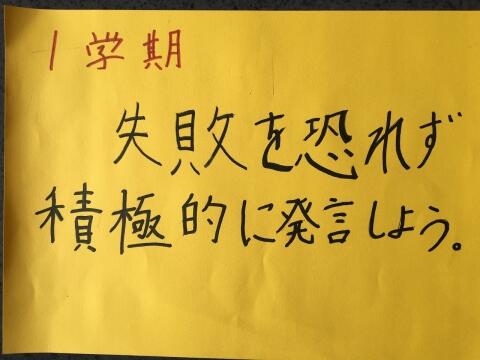 1学期
失敗を恐れず
積極的に発言しよう。